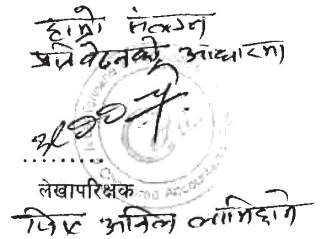 हाम्रो संलग्न
प्रतिवेदनको आधारमा
लेखापरिक्षक
सि.ए. अनिल लामिछाने